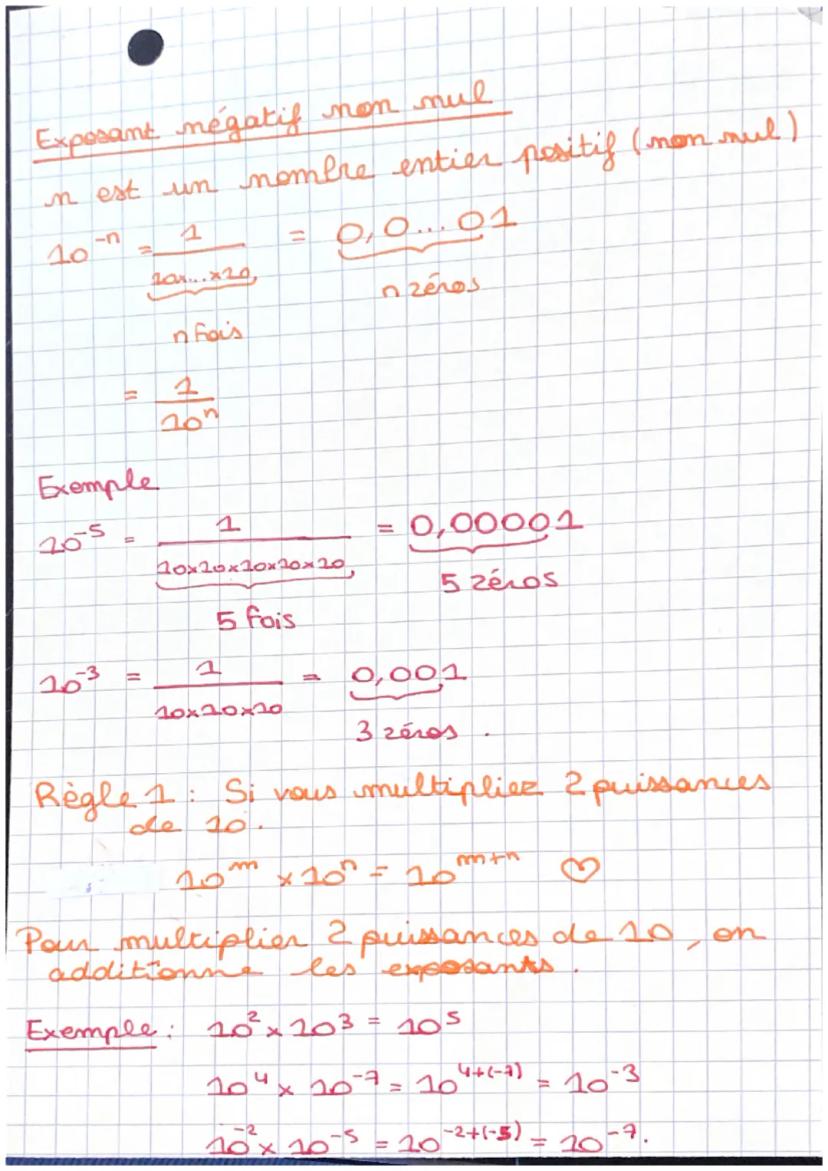 Exposant négatif non nul
n est un nombre entier positif (non nul)
10⁻ⁿ = 1/(10x...x10) = 0,0...01
n fois
n zéros
= 1/10ⁿ
Exemple
10⁻⁵ = 1/(10x10x10x10x10) = 0,00001
5 fois
5 zéros
10⁻³ = 1/(10x10x10) = 0,001
3 zéros.
Règle 1 : Si vous multipliez 2 puissances
de 10.
10ᵐ x 10ⁿ = 10ᵐ⁺ⁿ ♡
Pour multiplier 2 puissances de 10, on
additionne les exposants.
Exemple : 10² x 10³ = 10⁵
10⁴ x 10⁻⁷ = 10⁴⁺⁽⁻⁷⁾ = 10⁻³
10⁻² x 10⁻⁵ = 10⁻²⁺⁽⁻⁵⁾ = 10⁻⁷.